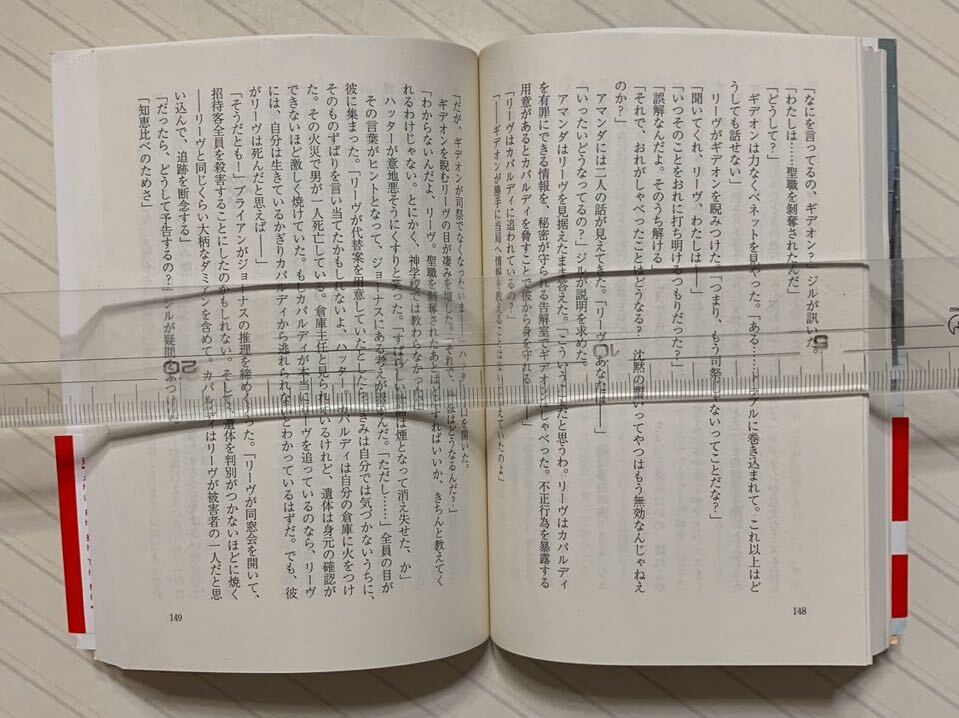 「なにを言ってるの、ギデオン？」ジルが訊いた。
「わたしは……聖職を剝奪されたんだ」
「どうして？」
ギデオンは力なくベネットを見やった。「ある……トラブルに巻き込まれて。これ以上はど
うしても話せない」
リーヴがギデオンを睨みつけた。「つまり、もう司祭じゃないってことだな？」
「聞いてくれ、リーヴ、わたしは——」
「いつそのことをおれに打ち明けるつもりだった？」
「誤解なんだよ。そのうち解ける」
「それで、おれがしゃべったことはどうなる？　沈黙の誓いってやつはもう無効なんじゃねえ
のか？」
アマンダには二人の話が見えてきた。「リーヴ、あなたは——」
「いったいどうなってるの？」ジルが説明を求めた。
アマンダはリーヴを見据えたまま答えた。「こういうことだと思うわ。リーヴはカパルディ
を有罪にできる情報を、秘密が守られる告解室でギデオンにしゃべった。不正行為を暴露する
用意があるとカパルディを脅すことで彼から身を守れる——」
「リーヴはカパルディに追われているの？」
「——ギデオンが勝手に当局へ情報を教えることはないと考えていたのよ」
148
「だが、ギデオンが司祭でなくなったいま——」ハッターが口を開いた。
ギデオンを睨むリーヴの目が凄みを増した。「それで、お次はどうなるんだ？」
「わからないんだよ、リーヴ。聖職を剝奪されたあとはどうすればいいか、きちんと教えてく
れるわけじゃない。とにかく、神学校では教わらなかった」
ハッターが意地悪そうにくすりと笑った。「すばらしい計画は煙となって消え失せた、か」
その言葉がヒントとなって、ジョーナスにある考えが浮んだ。「ただし……」全員の目が
彼に集まった。「リーヴが代替案を用意していたとしたら。きみは自分では気づかないうちに、
そのものずばりを言い当てたかもしれないよ、ハッター。カパルディは自分の倉庫に火をつけ
た。その火災で男が一人死亡している。倉庫主任と見られているけれど、遺体は身元の確認が
できないほど激しく焼けていた。もしカパルディが本当にリーヴを追っているのなら、リーヴ
には、自分は生きているかぎりカパルディから逃れられないとわかっているはずだ。でも、彼
がリーヴは死んだと思えば——」
「そうだとも！」ブライアンがジョーナスの推理を締めくくった。「リーヴが同窓会を開いて、
招待客全員を殺害することにしたのかもしれない。そして、遺体を判別がつかないほどに焼く
——リーヴと同じくらい大柄なダミアンを含めて。カパルディはリーヴが被害者の一人だと思
い込んで、追跡を断念する」
「だったら、どうして予告するの？」ジルが疑問をぶつけた。
「知恵比べのためさ」
149
5
10
20